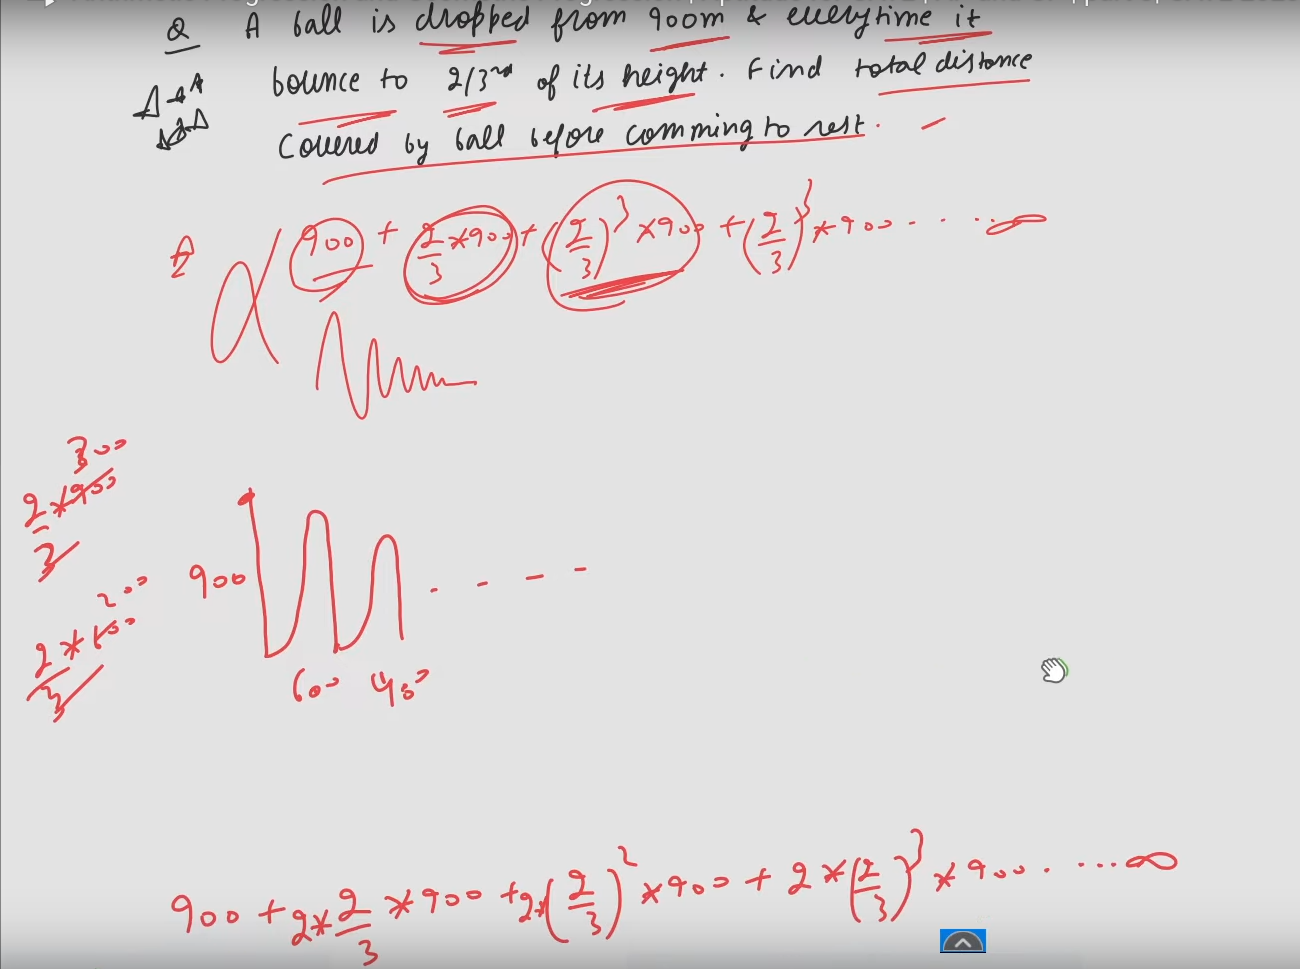 Q A ball is dropped from 900m & everytime it
bounce to 2/3rd of its height. Find total distance
covered by ball before comming to rest.
900 + 2/3 * 900 + (2/3)^2 * 900 + (2/3)^3 * 900 .... ∞
300
2/3 * 900
900
200
2/3 * 600
600 400
900 + 2* 2/3 * 900 + 2* (2/3)^2 * 900 + 2 * (2/3)^3 * 900 . ... ∞